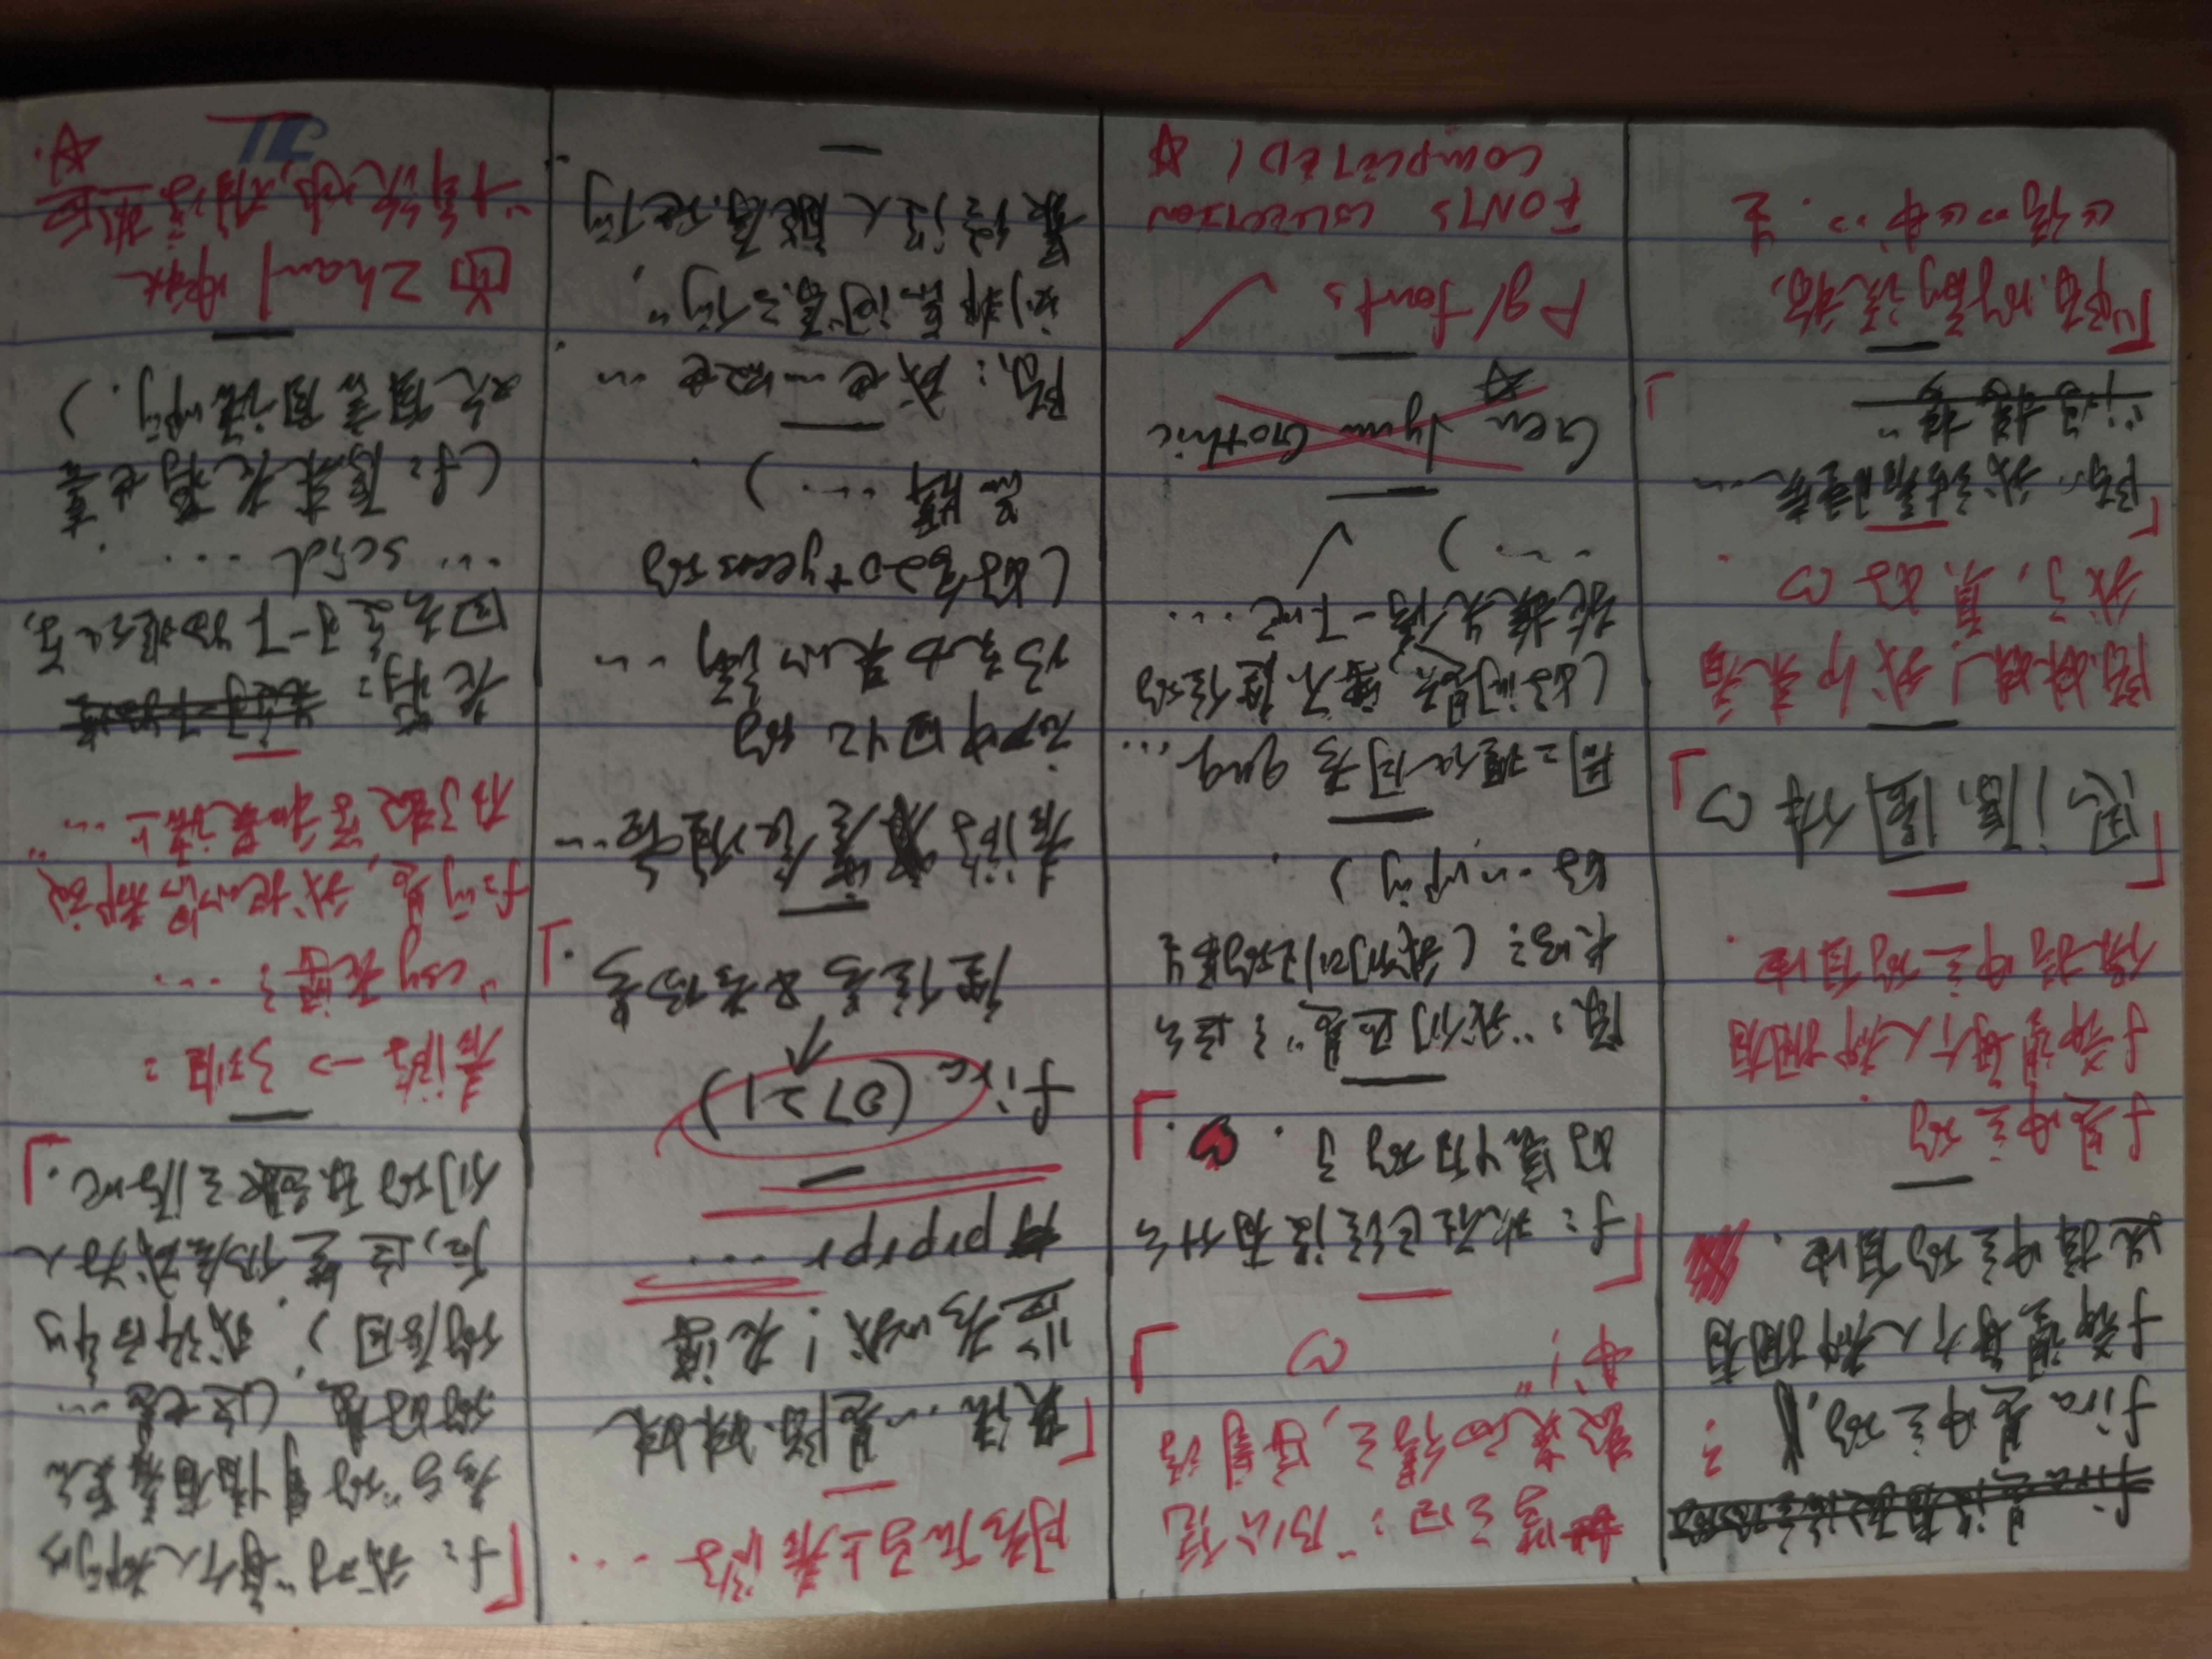 fira是中立的,
f希望每个人都拥有
选择中立的自由.
f是中立的.
f希望每个人都拥有
保持中立的自由.
「思源圆体♡」
陈妹妹!我印来看
我了,真好♡.
「陈:我活着
「"陈"的前读称,
生
骂之曰:"乃公凭
数英而得之,安事诗
书!" ♡」
「f:现在已经没有什么
好害怕的了.♥.」
陈:"我们还是"了这么
长吗?(我们的学生
好…啊)
周二理化月考 quq...
(好问题,要不座位的
轮换先停一下吧...
....) ✓
Gen Jyuu Gothic
Pg/fonts ✓
FONTS COLLECTION
COMPLETED! ☆
月考后马上春游...
「英语...是陈妹妹
监考哦!老婆
prprpr....
fira (0721)
↑
座位号&考场号.」
春游零食准备...
初中回忆的
巧克力夹心...
(好多20+years的
品牌....).
陈:成也...败也...
刘邦总问"为之何",
最终没人能为他何
「f:我对"每个人都可以
参与"的事情有着莫名
的好感,(这也是...
的原因),或许百年以
后,这些仍会成为人
们的乐趣之源吧.」
春游→了班:
"csy老婆?...
f:可是,我把心思都放
在了数学和英语上..."
老蒋:
回去复习一下物理化学,
... scid ....
(f:原来老蒋也喜
欢自言自语啊.)
Zhan1 中秋
"十年饮冰,难凉热血
☆.